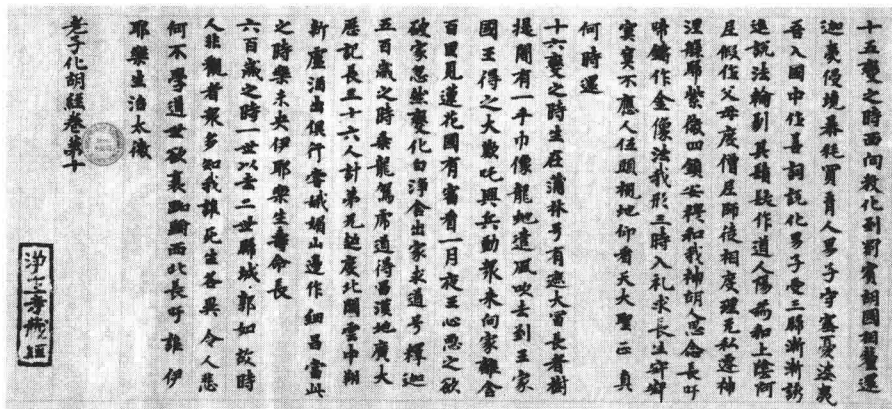 十五變之時西向教化到罽賓胡國相釐還
迦夷侵境暴耗買育人男子守塞憂婆夷
吾入國中作善詞說化男子受三歸漸漸誘
進說法輪剔其鬚髮作道人陽為和上陰阿
尼假作父母度僧尼師徒相度理无私遷神
涅槃歸紫微四鎮安穆和我神胡人思念長吁
啼鑄作金像法我形三時入礼求長生寂寂
寞寞不應人低頭視地仰看天大聖正真
何時還
十六變之時生在蒲林号有遮大富長者樹
提聞有一手巾像龍虵遣風吹去到王家
國王得之大歎吒興兵動眾來向家離舍
百里見蓮花國有審看一月夜王心思之欲
破家忽然變化白淨舍出家求道号釋迦
五百歲之時乘龍駕虎道得昌漢地廣大
歷記長三十六人計弟兄越度北闕雲中翔
新盧酒出俱行審娥媚山邊作細昌當此
之時樂未央伊耶樂生壽命長
六百歲之時一世以去二世歸城郭如故時
人非觀者眾多知我誰死生各異令人悲
何不學道世欲衰踟躕西北長吁誰伊
耶樂生治太微
老子化胡經卷第十
淨土寺藏經